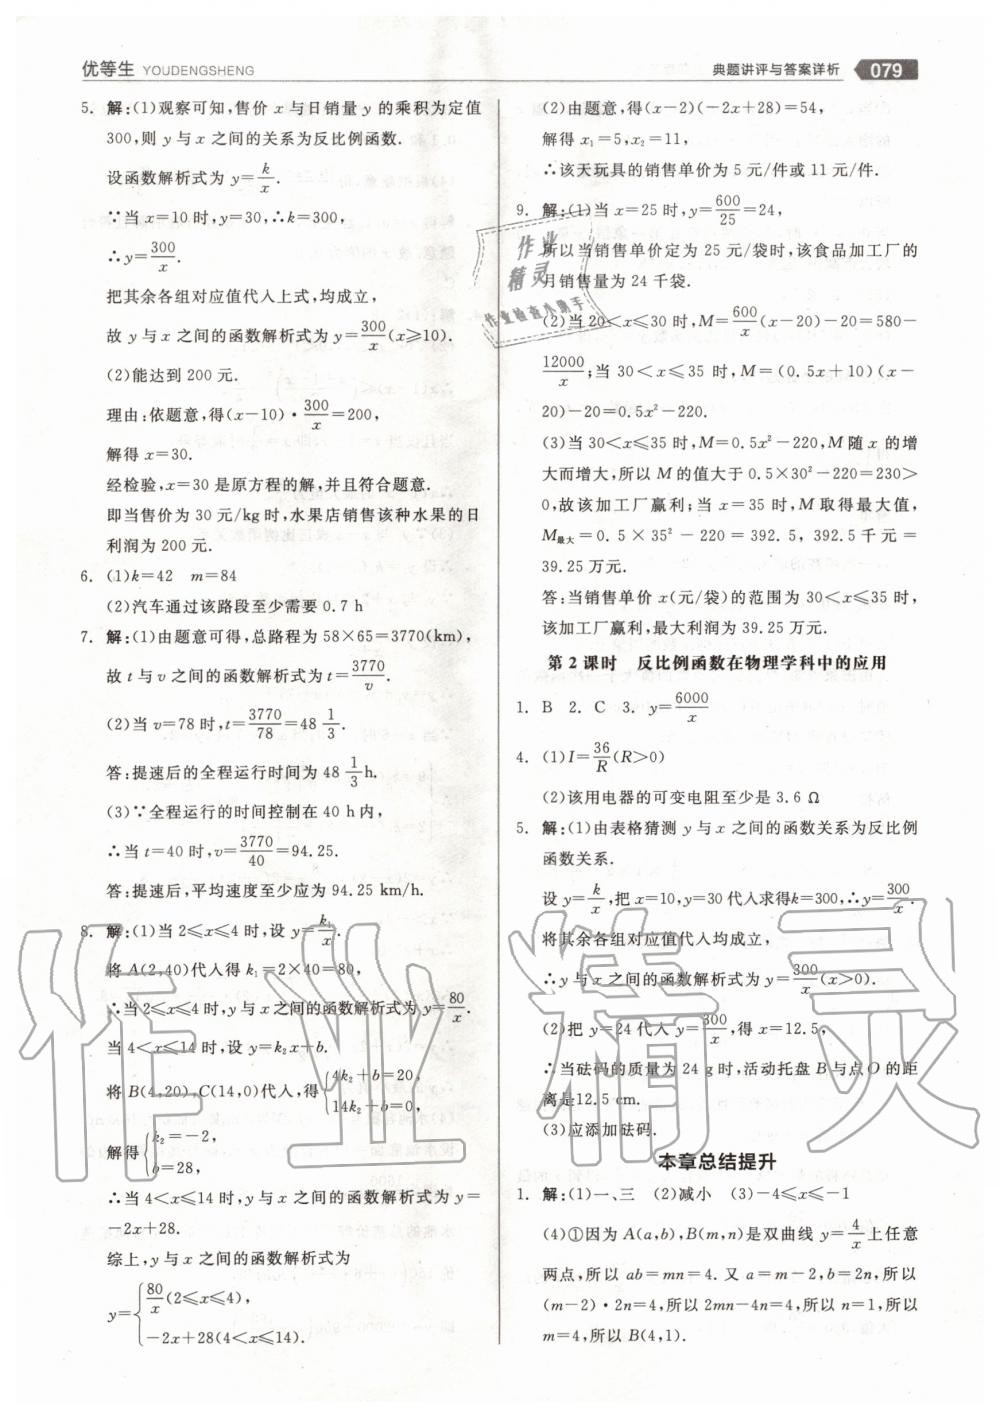 优等生 YOUDENGSHENG
典题讲评与答案详析 079
5. 解:(1)观察可知,售价 x 与日销量 y 的乘积为定值
300,则 y 与 x 之间的关系为反比例函数.
设函数解析式为 y=k/x.
∵当 x=10 时,y=30,∴k=300,
∴y=300/x.
把其余各组对应值代入上式,均成立,
故 y 与 x 之间的函数解析式为 y=300/x(x≥10).
(2)能达到 200 元.
理由:依题意,得(x-10)·300/x=200,
解得 x=30.
经检验,x=30 是原方程的解,并且符合题意.
即当售价为 30 元/kg 时,水果店销售该种水果的日
利润为 200 元.
6. (1)k=42 m=84
(2)汽车通过该路段至少需要 0.7 h
7. 解:(1)由题意可得,总路程为 58×65=3770(km),
故 t 与 v 之间的函数关系式为 t=3770/v.
(2)当 v=78 时,t=3770/78=48 1/3.
答:提速后的全程运行时间为 48 1/3 h.
(3)∵全程运行的时间控制在 40 h 内,
∴当 t=40 时,v=3770/40=94.25.
答:提速后,平均速度至少应为 94.25 km/h.
8. 解:(1)当 2≤x≤4 时,设 y=k₁/x.
将 A(2,40)代入得 k₁=2×40=80,
∴当 2≤x≤4 时,y 与 x 之间的函数解析式为 y=80/x.
当 4<x≤14 时,设 y=k₂x+b.
将 B(4,20),C(14,0)代入,得{4k₂+b=20,
14k₂+b=0,
解得{k₂=-2,
b=28,
∴当 4<x≤14 时,y 与 x 之间的函数解析式为 y=
-2x+28.
综上,y 与 x 之间的函数解析式为
y={80/x(2≤x≤4),
-2x+28(4<x≤14).
(2)由题意,得(x-2)(-2x+28)=54,
解得 x₁=5,x₂=11,
∴该天玩具的销售单价为 5 元/件或 11 元/件.
9. 解:(1)当 x=25 时,y=600/25=24,
所以当销售单价定为 25 元/袋时,该食品加工厂的
月销售量为 24 千袋.
(2)当 20<x≤30 时,M=600/x(x-20)-20=580-
12000/x;当 30<x≤35 时,M=(0.5x+10)(x-
20)-20=0.5x²-220.
(3)当 30<x≤35 时,M=0.5x²-220,M 随 x 的增
大而增大,所以 M 的值大于 0.5×30²-220=230>
0,故该加工厂赢利;当 x=35 时,M 取得最大值,
M最大=0.5×35²-220=392.5,392.5 千元=
39.25 万元.
答:当销售单价 x(元/袋)的范围为 30<x≤35 时,
该加工厂赢利,最大利润为 39.25 万元.
第 2 课时 反比例函数在物理学科中的应用
1. B 2. C 3. y=6000/x
4. (1)I=36/R(R>0)
(2)该用电器的可变电阻至少是 3.6 Ω
5. 解:(1)由表格猜测 y 与 x 之间的函数关系为反比例
函数关系.
设 y=k/x,把 x=10,y=30 代入求得k=300,∴y=300/x.
将其余各组对应值代入均成立,
∴y 与 x 之间的函数解析式为 y=300/x(x>0).
(2)把 y=24 代入 y=300/x,得 x=12.5,
∴当砝码的质量为 24 g 时,活动托盘 B 与点 O 的距
离是12.5 cm.
(3)应添加砝码.
本章总结提升
1. 解:(1)一、三 (2)减小 (3)-4≤x≤-1
(4)①因为 A(a,b),B(m,n)是双曲线 y=4/x上任意
两点,所以 ab=mn=4. 又 a=m-2,b=2n,所以
(m-2)·2n=4,所以 2mn-4n=4,所以 n=1,所以
m=4,所以 B(4,1).
作业精灵
作业检查小助手
作业精灵